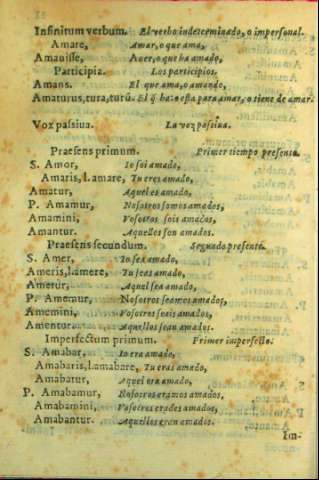 Infinitum verbum. El verbo indeterminado, o impersonal.
Amare, Amar, o que ama,
Amauisse, Auer, o que ha amado,
Participia. Los participios.
Amans. El que ama, o amando,
Amaturus, tura, turũ. El q̃ ha: o esta para amar, o tiene de amar.
Vox passiua. La voz passiua.
Praesens primum. Primer tiempo presente.
S. Amor, Io soi amado,
Amaris, l. amare, Tu eres amado,
Amatur, Aquel es amado,
P. Amamur, Nosotros somos amados,
Amamini, Vosotros sois amados,
Amantur. Aquellos son amados.
Praesens secundum. Segundo presente.
S. Amer, Io sea amado,
Ameris, l. amere, Tu seas amado,
Ametur, Aquel sea amado,
P. Amemur, Nosotros seamos amados,
Amemini, Vosotros seais amados,
Amentur. Aquellos sean amados.
Imperfectum primum. Primer imperfecto.
S. Amabar, Io era amado,
Amabaris, l. amabare, Tu eras amado,
Amabatur, Aquel era amado,
P. Amabamur, Nosotros eramos amados,
Amabamini, Vosotros erades amados,
Amabantur. Aquellos eran amados.
Im-